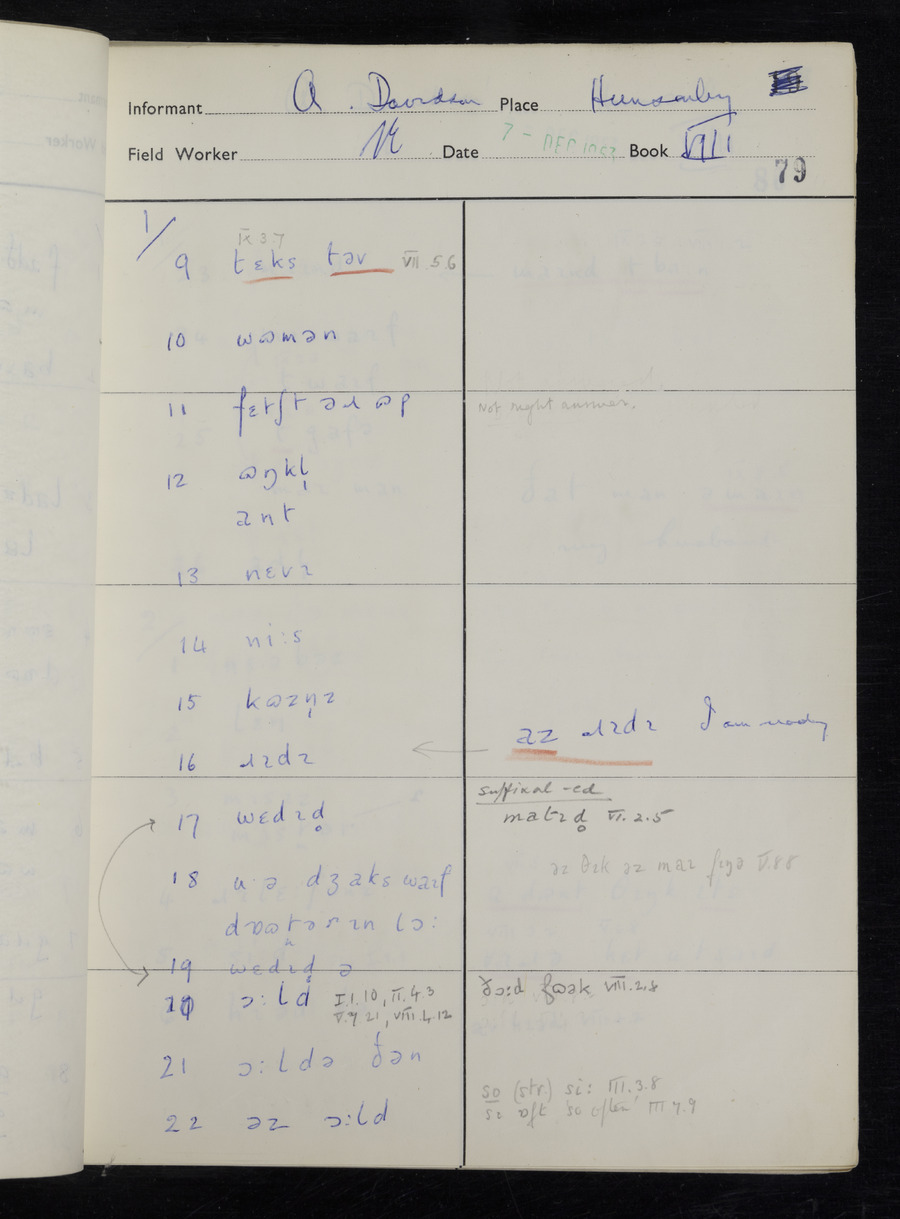 Informant A. Davidson Place Hunsonby
Field Worker Date 7 - DEC 1953 Book VIII
79
1/
IX 3.7
9 tɛks təv VII 5.6
10 wɷmən
11 fɛtʃt əɹ ɷp
Not right answer.
12 ɷŋkl̩
ant
13 nɛvɪ
14 ni:s
15 kɷzn̩z
16 ɹɪdɪ
az ɹɪdɪ I am ready
17 wɛdɪd̥
suffixal -ed
matɪd̥ VI.2.5
18 dʒaks waɪf
əz θɪk əz maɪ fɪŋə V.8.8
19 wɛdɪd̥ ə
20 ɔ:ld I.1.10, II.4.3
V.7.21, VIII.4.12
ɔ:d fɷək VIII.2.8
21 ɔ:ldə ðən
22 əz ɔ:ld
so (str.) si: III.3.8
sɪ ɒft 'so often' III 7.9